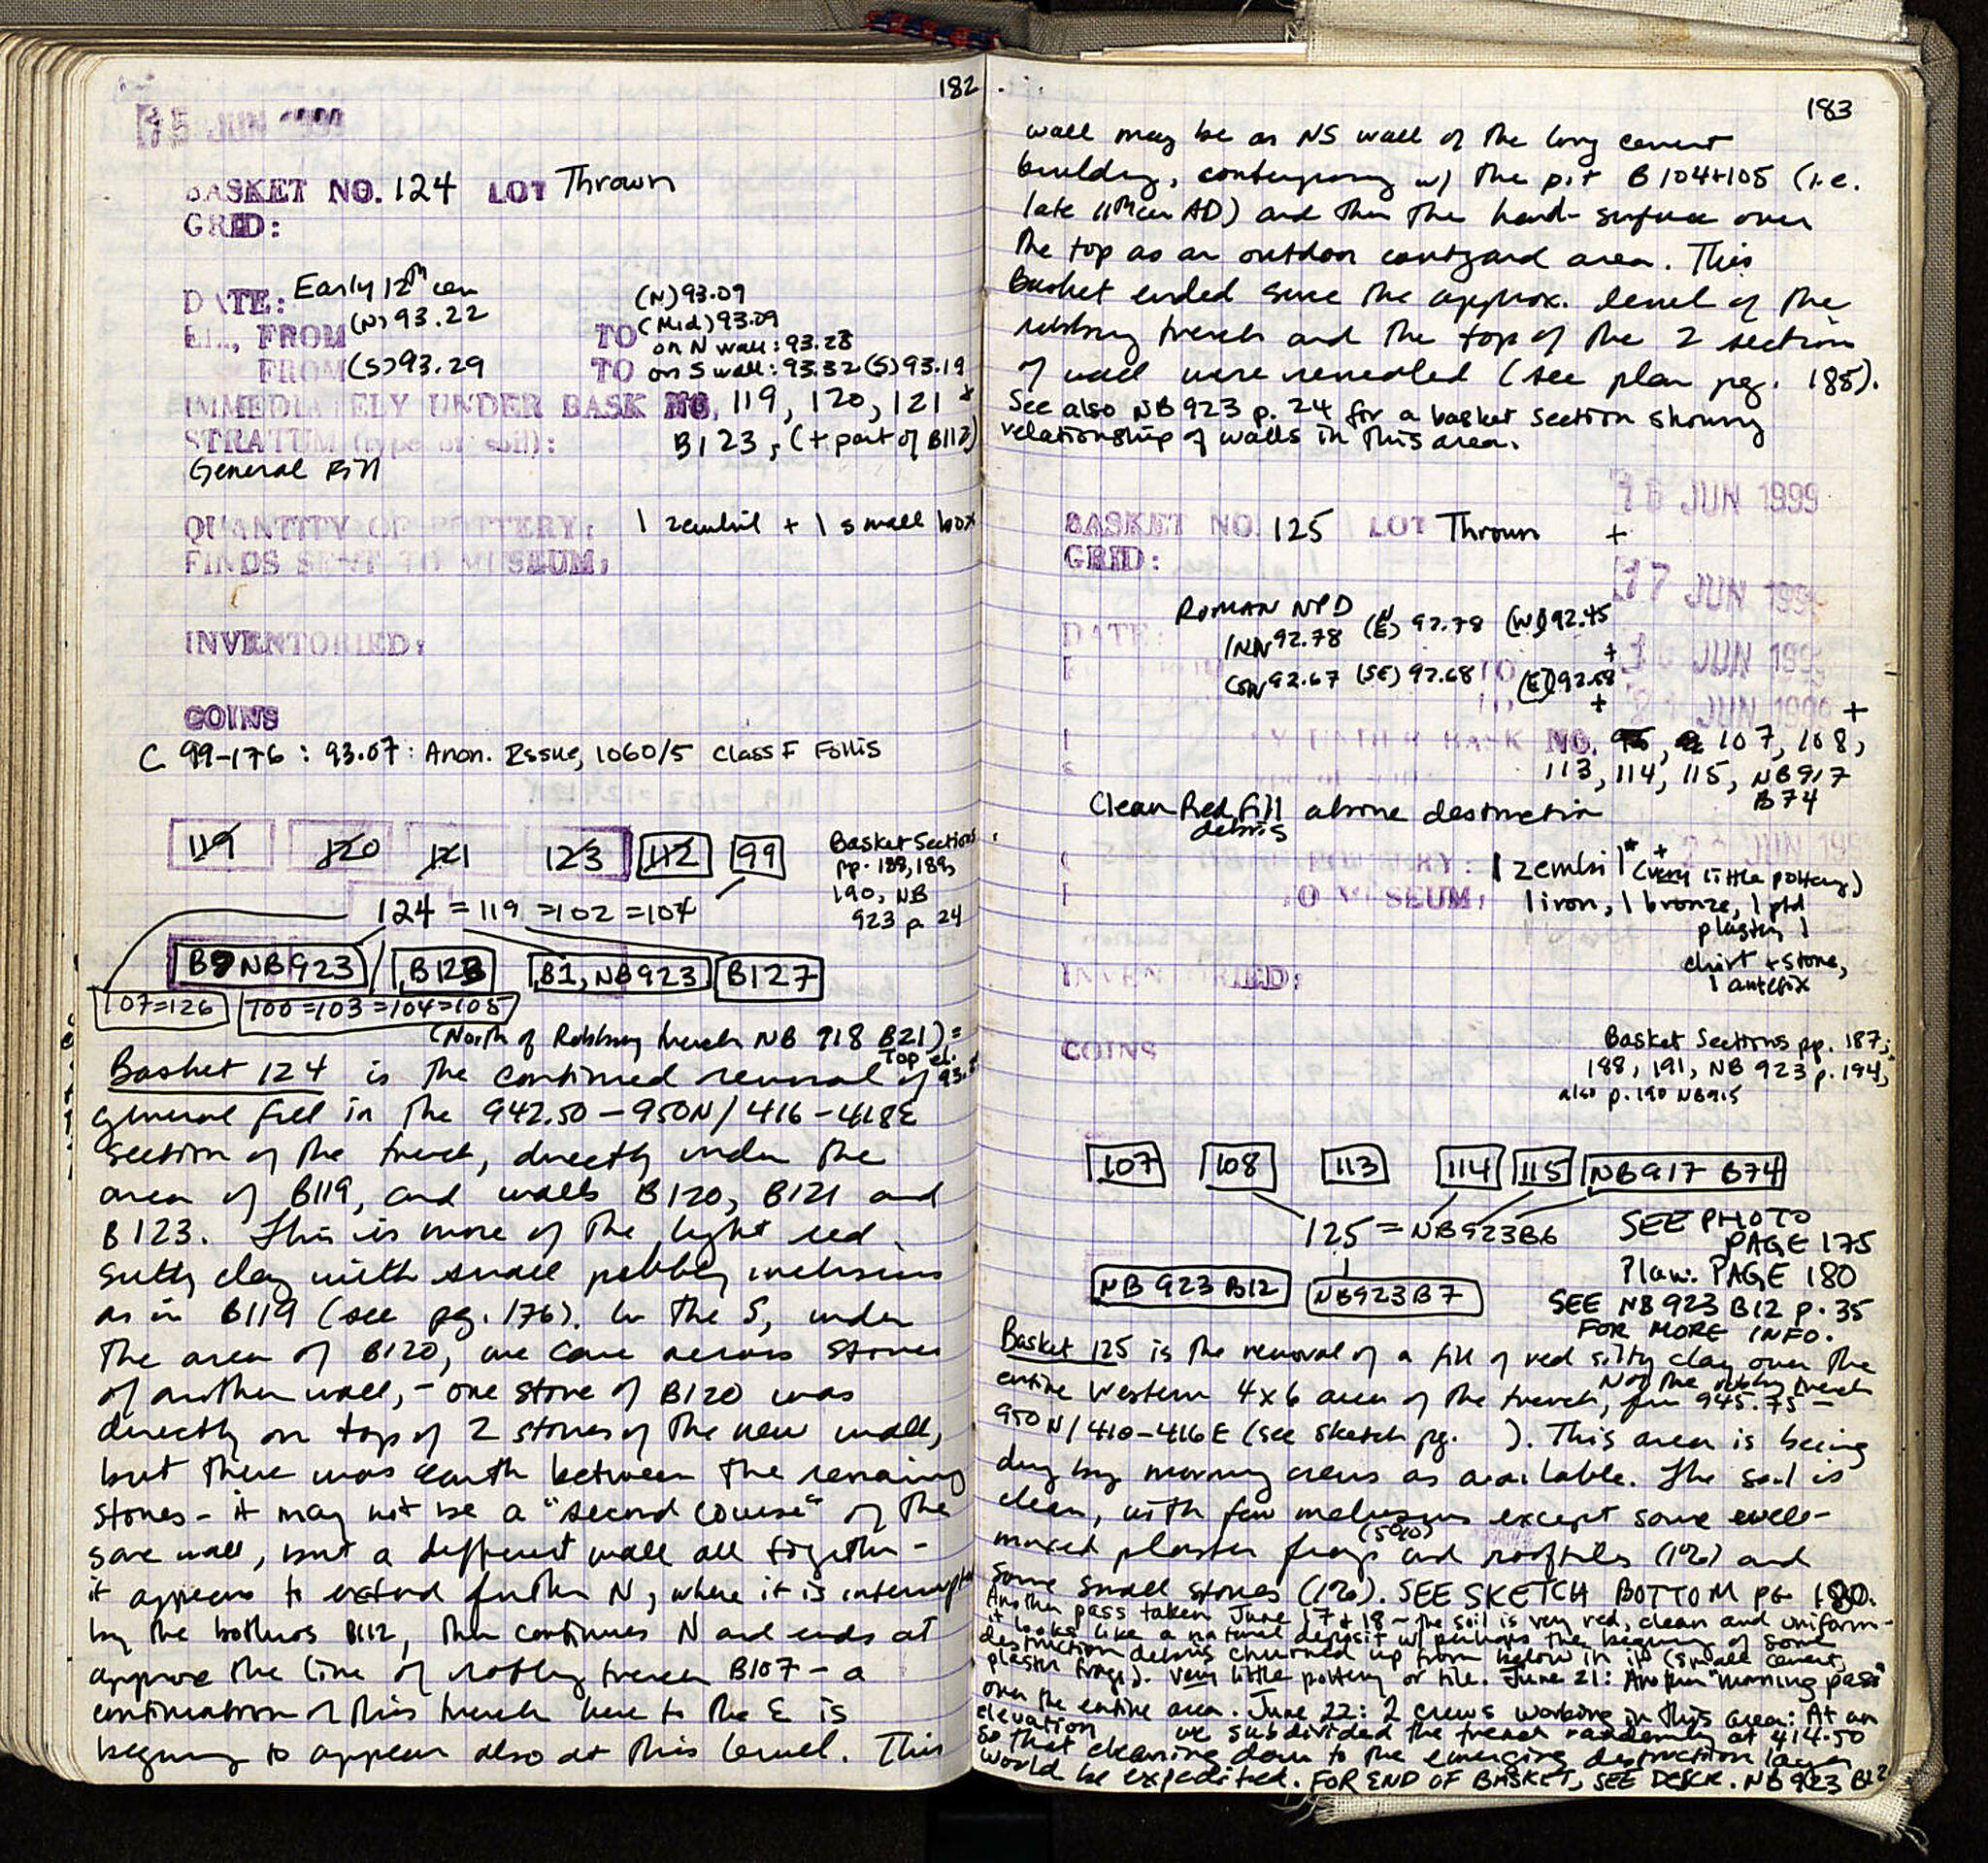 182
15 JUN 1999
BASKET NO. 124 LOT Thrown
GRID:
DATE: Early 12th cen
EL., FROM (N) 93.22 TO (N) 93.09
(Mid) 93.09
on N wall: 93.28
FROM (S) 93.29 TO on S wall: 93.32 (S) 93.19
IMMEDIATELY UNDER BASK NO. 119, 120, 121 +
STRATUM (type of soil): B123, (+ part of B112)
General Fill
QUANTITY OF POTTERY: 1 zembil + 1 small box
FINDS SENT TO MUSEUM:
INVENTORIED:
COINS
C 99-176 : 93.07 : Anon. Issue, 1060/5 Class F Follis
119 120 121 123 112 99
Basket Sections
pp. 188, 189,
190, NB
923 p. 24
124 = 119 = 102 = 104
B9 NB 923 B123 B1, NB 923 B127
107=126 100=103=104=105
(North of Robbing trench NB 918 B21) =
Top el.
Basket 124 is the continued removal of
general fill in the 942.50 - 950N / 416 - 418E
section of the trench, directly under the
area of B119, and walls B120, B121 and
B123. This is more of the light red
silty clay with small pebbly inclusions
as in B119 (see pg. 176). In the S, under
the area of B120, we came across stones
of another wall, - one stone of B120 was
directly on top of 2 stones of the new wall,
but there was earth between the remaining
stones - it may not be a "second course" of the
same wall, but a different wall all together -
it appears to extend further N, where it is interrupted
by the bothros B112, then continues N and ends at
approx the line of robbing trench B107 - a
continuation of this trench here to the E is
beginning to appear also at this level. This
183
wall may be as NS wall of the long cement
building, contemporary w/ the pit B104+105 (i.e.
late 11th cen AD) and then the hard-surface over
the top as an outdoor courtyard area. This
basket ended since the approx. level of the
robbing trench and the top of the 2 section
of wall were revealed (see plan pg. 185).
See also NB 923 p. 24 for a basket section showing
relationship of walls in this area.
16 JUN 1999
BASKET NO. 125 LOT Thrown +
GRID:
17 JUN 199
ROMAN NPD
DATE: (NW) 92.78 (E) 92.78 (W) 92.45
+ JUN 199
(SW) 92.67 (SE) 92.68 TO (E) 92.68
+ JUN 199 +
UNDER BASK NO. 107, 108,
113, 114, 115, NB917
B74
Clean Red fill above destruction
debris
POTTERY: 1 zembil * + (very little pottery)
TO MUSEUM: 1 iron, 1 bronze, 1 ptd
plaster, 1
chist + stone,
1 antefix
INVENTORIED:
COINS
Basket Sections pp. 187,
188, 191, NB 923 p. 194,
also p. 190 NB915
107 108 113 114 115 NB917 B74
125 = NB923B6
NB 923 B12 NB923B7
SEE PHOTO
PAGE 175
Plan: PAGE 180
SEE NB 923 B12 p. 35
FOR MORE INFO.
Basket 125 is the removal of a fill of red silty clay over the
N of the robbing trench
entire western 4x6 area of the trench, from 945.75 -
950N / 410-416E (see sketch pg. ). This area is being
dug by morning crews as available. The soil is
clean, with few inclusions except some well-
mixed plaster frags (5%) and rooftiles (1%) and
some small stones (1%). SEE SKETCH BOTTOM PG 180.
Another pass taken June 17 + 18 - the soil is very red, clean and uniform -
it looks like a natural deposit w/ perhaps the beginning of some
destruction debris churned up from below in it (small cement,
plaster frags). Very little pottery or tile. June 21: Another "morning pass"
over the entire area. June 22: 2 crews working in this area: At an
elevation we subdivided the trench randomly at 414.50
so that cleaning down to the emerging destruction layer
would be expedited. FOR END OF BASKET, SEE DESCR. NB 923 B12